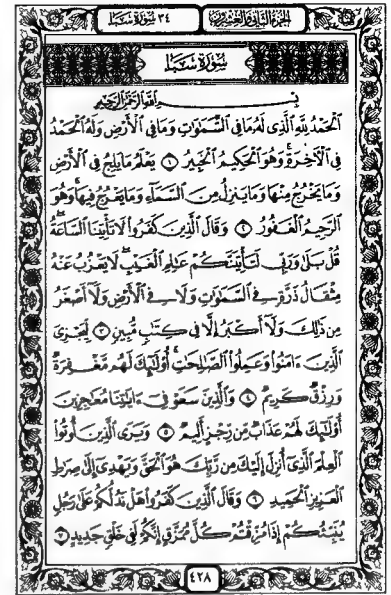 الجزء الثاني والعشرون
٣٤ سورة سبأ
سورة سبأ
بسم الله الرحمن الرحيم
ٱلْحَمْدُ لِلَّهِ ٱلَّذِى لَهُۥ مَا فِى ٱلسَّمَٰوَٰتِ وَمَا فِى ٱلْأَرْضِ وَلَهُ ٱلْحَمْدُ
فِى ٱلْءَاخِرَةِ ۚ وَهُوَ ٱلْحَكِيمُ ٱلْخَبِيرُ ١ يَعْلَمُ مَا يَلِجُ فِى ٱلْأَرْضِ
وَمَا يَخْرُجُ مِنْهَا وَمَا يَنزِلُ مِنَ ٱلسَّمَآءِ وَمَا يَعْرُجُ فِيهَا ۚ وَهُوَ
ٱلرَّحِيمُ ٱلْغَفُورُ ٢ وَقَالَ ٱلَّذِينَ كَفَرُوا۟ لَا تَأْتِينَا ٱلسَّاعَةُ ۖ
قُلْ بَلَىٰ وَرَبِّى لَتَأْتِيَنَّكُمْ عَٰلِمِ ٱلْغَيْبِ ۖ لَا يَعْزُبُ عَنْهُ
مِثْقَالُ ذَرَّةٍ فِى ٱلسَّمَٰوَٰتِ وَلَا فِى ٱلْأَرْضِ وَلَآ أَصْغَرُ
مِن ذَٰلِكَ وَلَآ أَكْبَرُ إِلَّا فِى كِتَٰبٍ مُّبِينٍ ٣ لِّيَجْزِىَ
ٱلَّذِينَ ءَامَنُوا۟ وَعَمِلُوا۟ ٱلصَّٰلِحَٰتِ ۚ أُو۟لَٰٓئِكَ لَهُم مَّغْفِرَةٌ
وَرِزْقٌ كَرِيمٌ ٤ وَٱلَّذِينَ سَعَوْ فِىٓ ءَايَٰتِنَا مُعَٰجِزِينَ
أُو۟لَٰٓئِكَ لَهُمْ عَذَابٌ مِّن رِّجْزٍ أَلِيمٌ ٥ وَيَرَى ٱلَّذِينَ أُوتُوا۟
ٱلْعِلْمَ ٱلَّذِىٓ أُنزِلَ إِلَيْكَ مِن رَّبِّكَ هُوَ ٱلْحَقَّ وَيَهْدِىٓ إِلَىٰ صِرَٰطِ
ٱلْعَزِيزِ ٱلْحَمِيدِ ٦ وَقَالَ ٱلَّذِينَ كَفَرُوا۟ هَلْ نَدُلُّكُمْ عَلَىٰ رَجُلٍ
يُنَبِّئُكُمْ إِذَا مُزِّقْتُمْ كُلَّ مُمَزَّقٍ إِنَّكُمْ لَفِى خَلْقٍ جَدِيدٍ ٧
٤٢٨